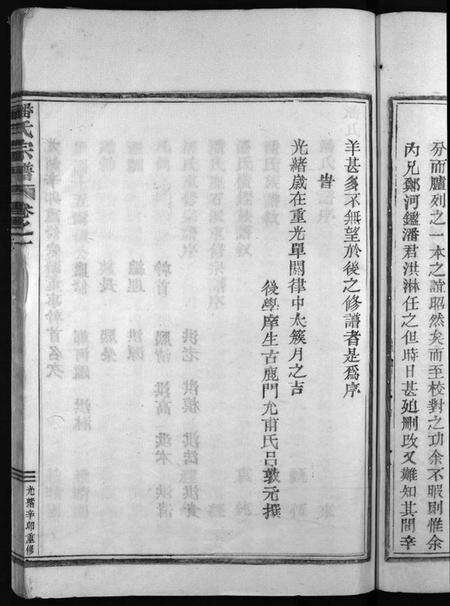 分而臚列之一本之誼昭然矣而至校對之功余不暇則惟余
內兄鄭河鑑潘君洪淋任之但時日甚廹刪改又難知其間辛
羊甚多不無望於後之修譜者是爲序
旹
光緒歲在重光單閼律中太簇月之吉
後學庠生古鹿門允甫氏呂敦元撰
潘氏宗譜
卷之一
光緒辛卯重修